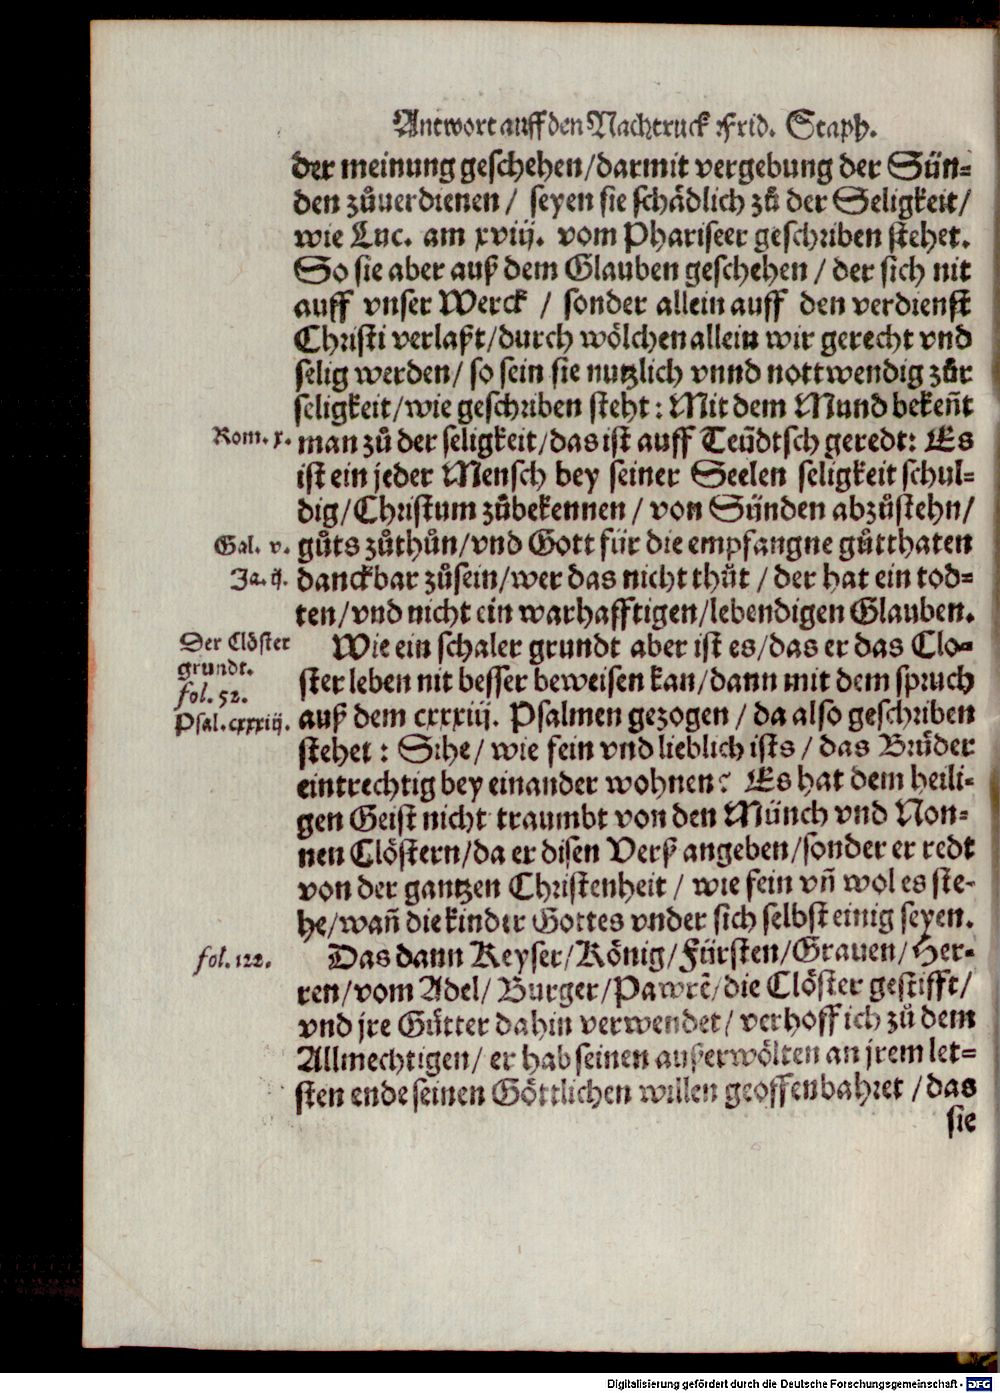 Antwort auff den Nachtruck Frid. Staph.
der meinung geschehen/darmit vergebung der Sün-
den zůuerdienen / seyen sie schädlich zů der Seligkeit/
wie Luc. am xviij. vom Phariseer geschriben stehet.
So sie aber auß dem Glauben geschehen / der sich nit
auff vnser Werck / sonder allein auff den verdienst
Christi verlaßt/durch wölchen allein wir gerecht vnd
selig werden/ so sein sie nutzlich vnnd nottwendig zůr
seligkeit/wie geschriben steht: Mit dem Mund bekeñt
Rom. x. man zů der seligkeit/das ist auff Teüdtsch geredt: Es
ist ein jeder Mensch bey seiner Seelen seligkeit schul-
dig/Christum zůbekennen / von Sünden abzůstehn/
Gal. v. gůts zůthůn/vnd Gott für die empfangne gůtthaten
Ja. ij. danckbar zůsein/wer das nicht thůt / der hat ein tod-
ten/vnd nicht ein warhafftigen/lebendigen Glauben.
Der Clöster Wie ein schaler grundt aber ist es/das er das Clo-
grundt.
fol. 52. ster leben nit besser beweisen kan/dann mit dem spruch
Psal. cxxxiij. auß dem cxxxiij. Psalmen gezogen / da also geschriben
stehet : Sihe/ wie fein vnd lieblich ists / das Brüder
eintrechtig bey einander wohnen? Es hat dem heili-
gen Geist nicht traumbt von den Münch vnd Non-
nen Clöstern/da er disen Verß angeben/sonder er redt
von der gantzen Christenheit / wie fein vñ wol es ste-
he/wañ die kinder Gottes vnder sich selbst einig seyen.
fol. 122. Das dann Keyser/König/Fürsten/Grauen/Her-
ren/vom Adel/ Burger/Pawrẽ/die Clöster gestifft/
vnd jre Gütter dahin verwendet/ verhoff ich zů dem
Allmechtigen/ er hab seinen außerwölten an jrem let-
sten ende seinen Göttlichen willen geoffenbahret /das
sie
Digitalisierung gefördert durch die Deutsche Forschungsgemeinschaft - DFG